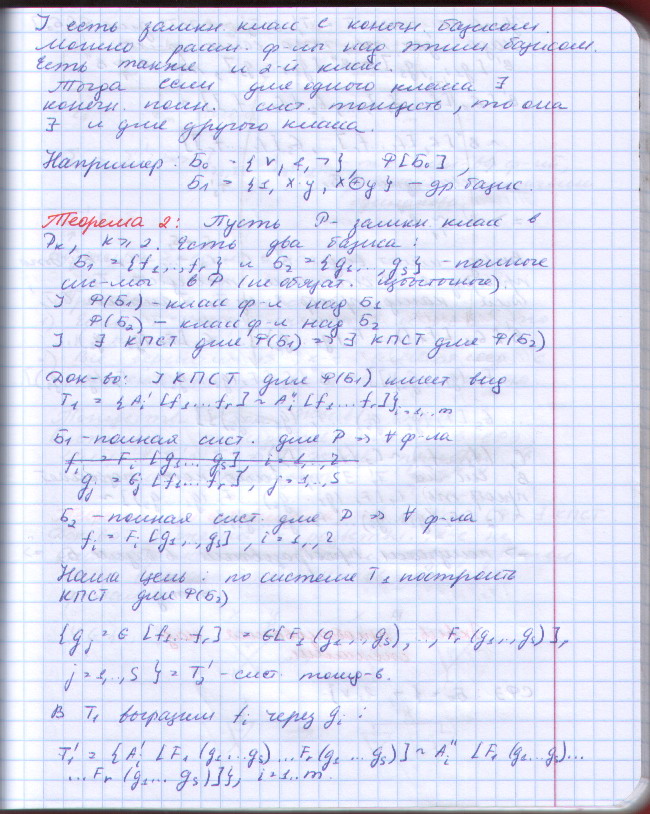 ] есть замкн. класс с конечн. базисом.
Можно расм. ф-лы над этим базисом.
Есть также и 2-й класс.
Тогда если для одного класса ∃
конечн. полн. сист. тождеств, то она
∃ и для другого класса.
Например: Б₀ = {∨, &, ¬} Ф[Б₀]
Б₁ = {1, x·y, x⊕y} – др базис.
Теорема 2: Пусть P – замкн. класс в
Pₖ, k ≥ 2. Есть два базиса:
Б₁ = {f₁,..,fᵣ} и Б₂ = {g₁,..,gₛ} – полные
сис-мы в P (не обязат. избыточные).
] Ф(Б₁) – класс ф-л над Б₁
Ф(Б₂) – класс ф-л над Б₂
] ∃ КПСТ для Ф(Б₁) => ∃ КПСТ для Ф(Б₂)
Док-во: ] КПСТ для Ф(Б₁) имеет вид
T₁ = {Aᵢ' [f₁...fᵣ] ~ Aᵢ'' [f₁...fᵣ]}ᵢ₌₁..ₘ
Б₁ – полная сист. для P => ∀ ф-ла
fᵢ = Fᵢ [g₁...gₛ], i = 1,..,r
gⱼ = Gⱼ [f₁...fᵣ], j = 1,..,s
Б₂ – полная сист. для P => ∀ ф-ла
fᵢ = Fᵢ [g₁,..,gₛ], i = 1,..,r
Наша цель: по системе T₁ построить
КПСТ для Ф(Б₂)
{gⱼ = G [f₁...fᵣ] = G[F₁(g₁...gₛ),..,Fᵣ(g₁,..,gₛ)],
j = 1,..,s} = T₂' – сист. тожд-в.
В T₁ выразим fᵢ через gᵢ:
T₁' = {Aᵢ' [F₁(g₁...gₛ)...Fᵣ(g₁...gₛ)] ~ Aᵢ'' [F₁(g₁...gₛ)...
...Fᵣ(g₁...gₛ)]}, i = 1..m.